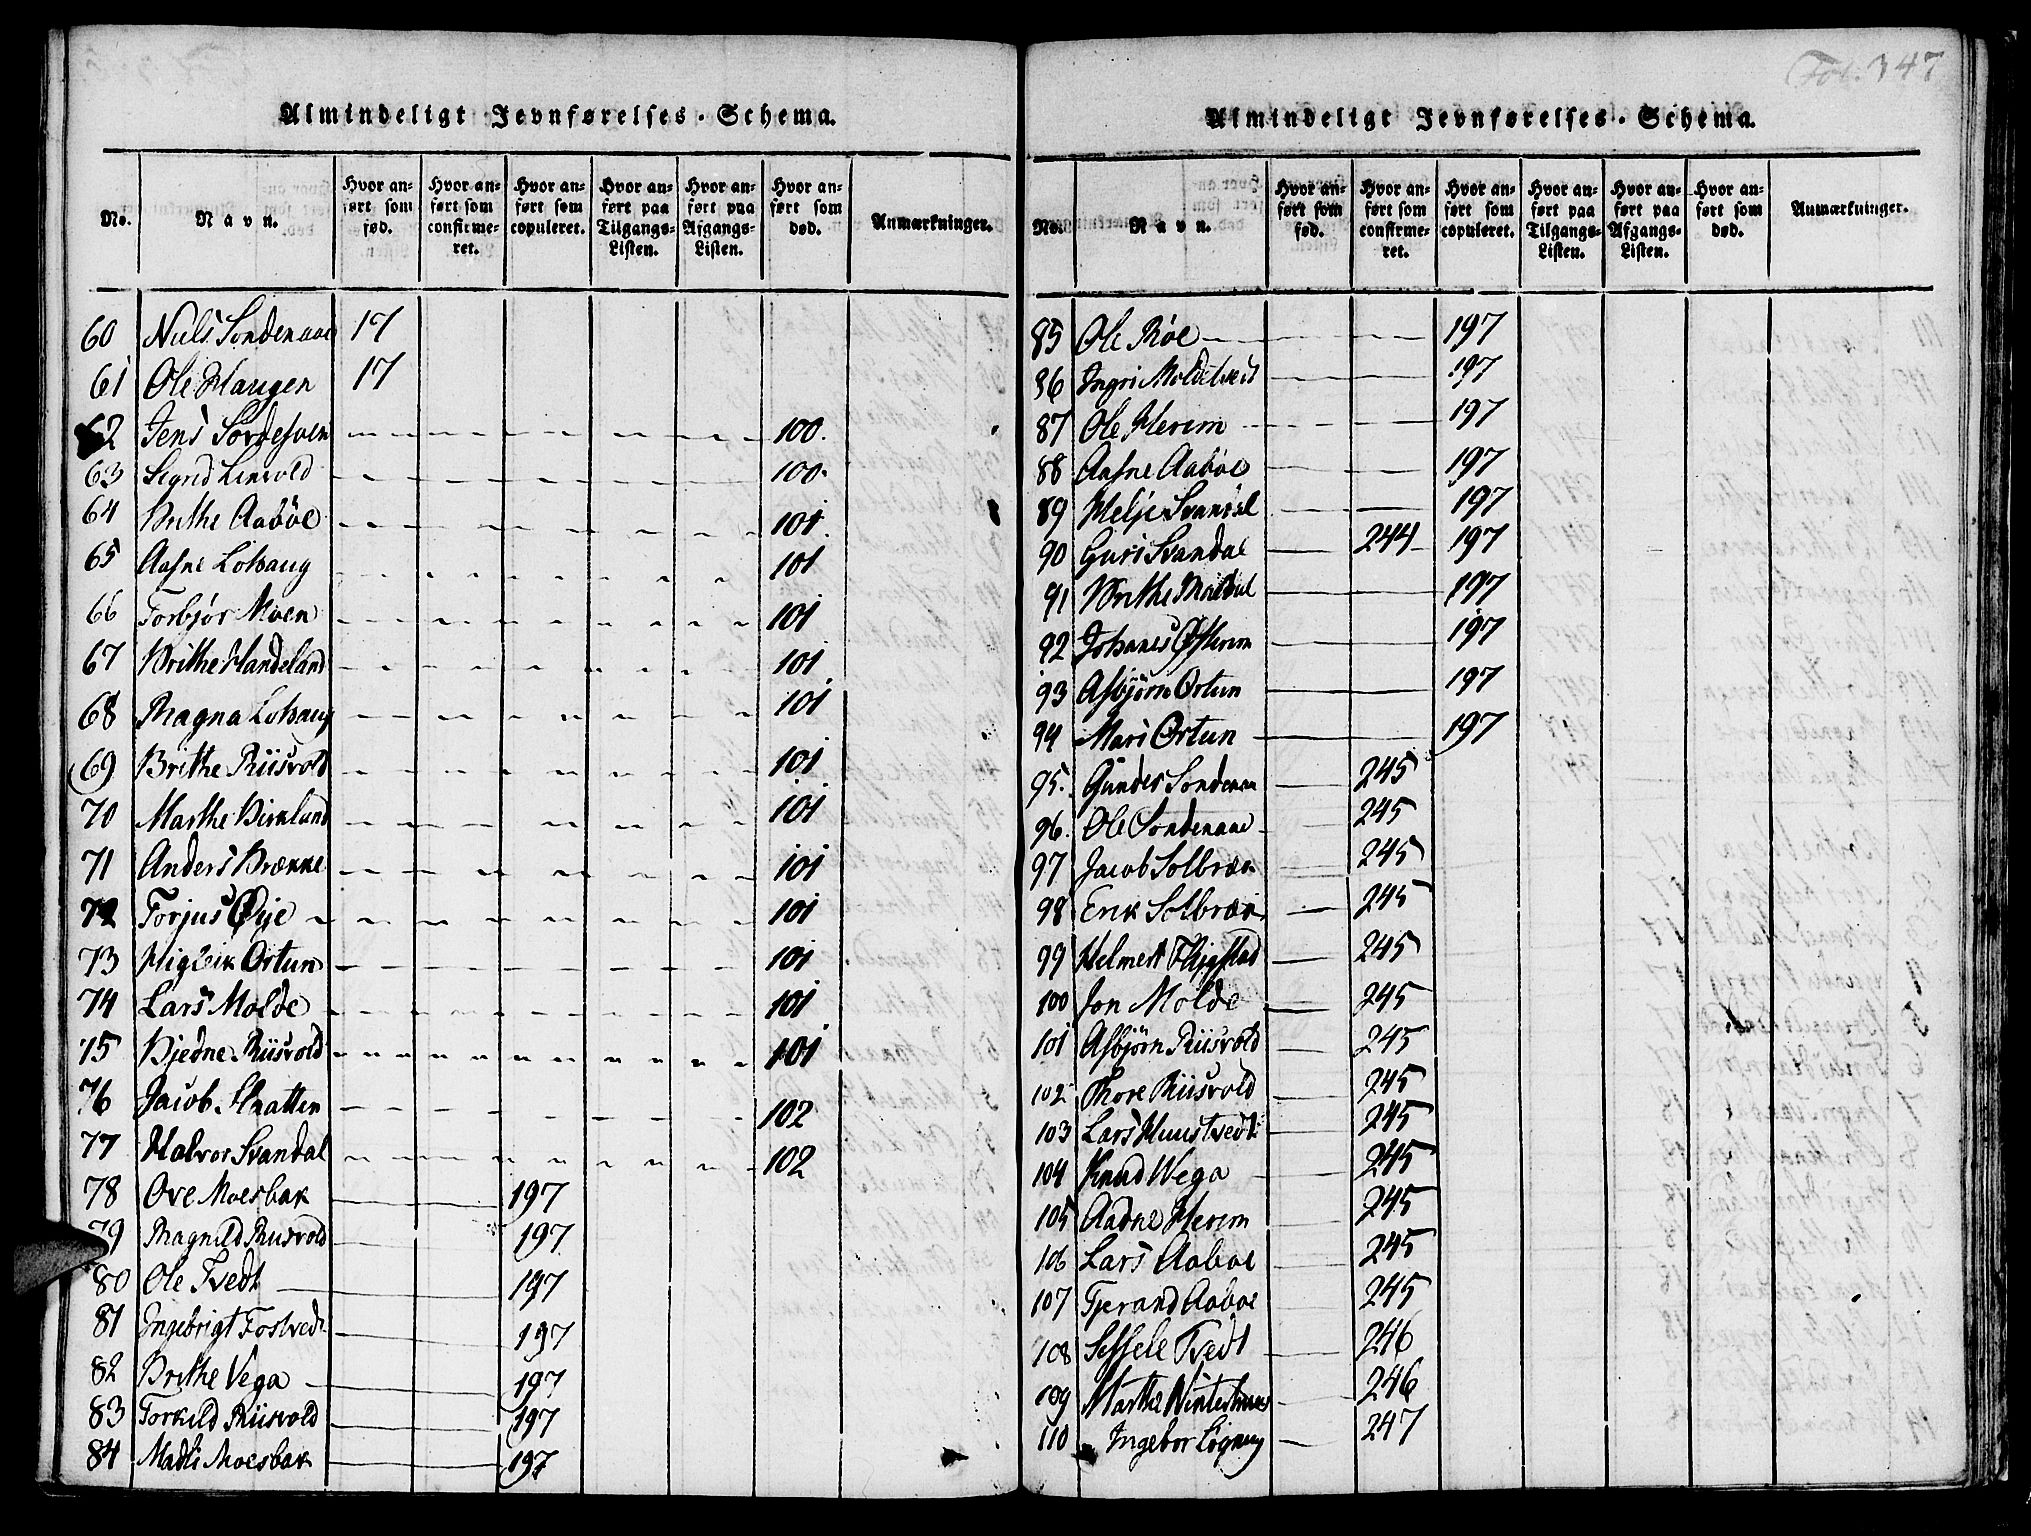 Almindeligt Jevnførelses-Schema.
No. Navn. Hvor anført som fød. Hvor anført som confirmeret. Hvor anført som copuleret. Hvor anført paa Tilgangs-Listen. Hvor anført paa Afgangs-Listen. Hvor anført som død. Anmærkninger.
60 Niels Sondenaae 17
61 Ole Haugen 17
62 Jens Sordesven 100.
63 Sigrid Linvold 100.
64 Brithe Aabøe 101.
65 Aasne Lohaug 101
66 Torbjør Moen 101
67 Brithe Handeland 101
68 Ragna Lohaug 101
69 Brithe Riisvold 101
70 Marthe Birkland 101
71 Anders Brække 101
72 Torjus Øye 101
73 Migleik Ørtun 101
74 Lars Molde 101
75 Bjedne Riisvold 101
76 Jacob Skatten 102
77 Halvor Svandal 102
78 Ove Moesbak 197
79 Ragnild Riisvold 197
80 Ole Tvedt 197
81 Ingebrigt Fostvedt 197
82 Brithe Vega 197
83 Torkild Riisvold 197
84 Madli Moesbak 197
Fol. 347
Almindeligt Jevnførelses-Schema.
No. Navn. Hvor anført som fød. Hvor anført som confirmeret. Hvor anført som copuleret. Hvor anført paa Tilgangs-Listen. Hvor anført paa Afgangs-Listen. Hvor anført som død. Anmærkninger.
85 Ole Røe 197
86 Ingri Moldetvedt 197
87 Ole Herem 197
88 Aasne Aabøe 197
89 Helje Svandal 197
90 Guri Svandal 244 197
91 Brithe Maldal 197
92 Johanes Østerem 197
93 Asbjørn Ørtun 197
94 Mari Ørtun 197
95. Gunder Sondenaa 245
96. Ole Sondenaae 245
97 Jacob Solbræk 245
98 Erik Solbræk 245
99 Helmek 245
100 Jon Molde 245
101 Asbjørn Riisvold 245
102 Thore Riisvold 245
103 Lars Huustvedt 245
104 Knud Wega 245
105 Aadne Herem 245
106 Lars Aaboe 245
107 Tjerand Aaboe 245
108 Sessele Tvedt 246
109 Marthe Winterhuus 246
110 Ingebor Lognvig 247